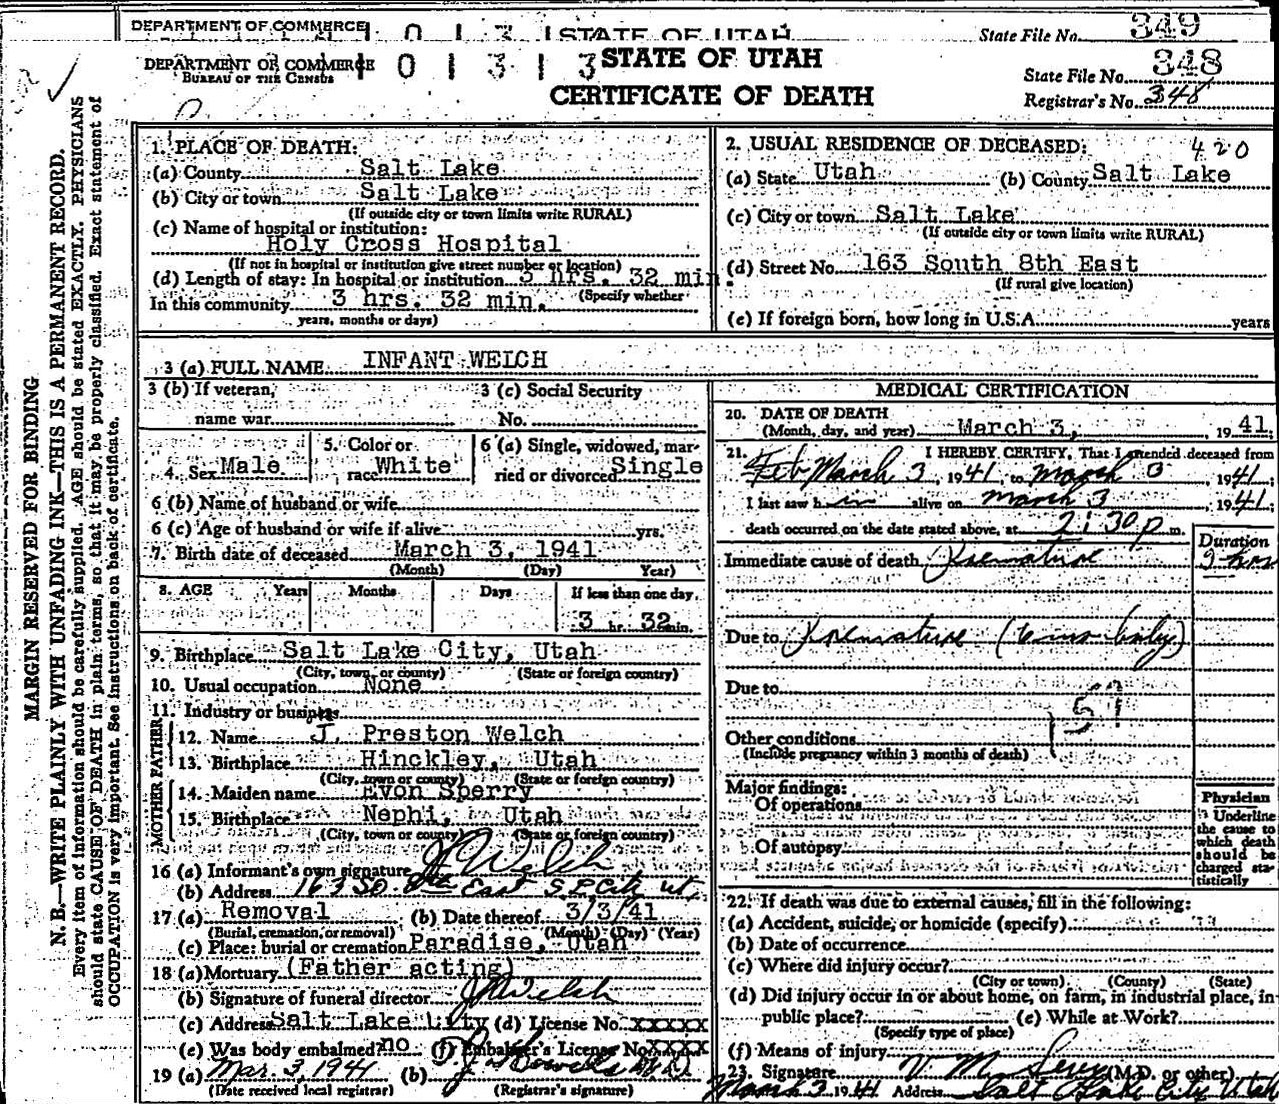 DEPARTMENT OF COMMERCE
STATE OF UTAH
State File No. 349
DEPARTMENT OF COMMERCE
BUREAU OF THE CENSUS
0 1 3 1 3
STATE OF UTAH
CERTIFICATE OF DEATH
State File No. 348
Registrar's No. 348
MARGIN RESERVED FOR BINDING
N. B.—WRITE PLAINLY WITH UNFADING INK—THIS IS A PERMANENT RECORD.
Every item of information should be carefully supplied. AGE should be stated EXACTLY. PHYSICIANS
should state CAUSE OF DEATH in plain terms, so that it may be properly classified. Exact statement of
OCCUPATION is very important. See instructions on back of certificate.
1. PLACE OF DEATH:
(a) County Salt Lake
(b) City or town Salt Lake
(If outside city or town limits write RURAL)
(c) Name of hospital or institution:
Holy Cross Hospital
(If not in hospital or institution give street number or location)
(d) Length of stay: In hospital or institution 3 hrs. 32 min.
(Specify whether
In this community 3 hrs. 32 min.
years, months or days)
2. USUAL RESIDENCE OF DECEASED: 420
(a) State Utah (b) County Salt Lake
(c) City or town Salt Lake
(If outside city or town limits write RURAL)
(d) Street No. 163 South 8th East
(If rural give location)
(e) If foreign born, how long in U.S.A. years
3 (a) FULL NAME INFANT WELCH
3 (b) If veteran,
name war
3 (c) Social Security
No.
4. Sex Male
5. Color or
race White
6 (a) Single, widowed, mar-
ried or divorced Single
6 (b) Name of husband or wife
6 (c) Age of husband or wife if alive yrs.
7. Birth date of deceased March 3, 1941
(Month) (Day) (Year)
8. AGE Years Months Days If less than one day
3 hr. 32 min.
9. Birthplace Salt Lake City, Utah
(City, town, or county) (State or foreign country)
10. Usual occupation None
11. Industry or business
FATHER
12. Name J. Preston Welch
13. Birthplace Hinckley, Utah
(City, town or county) (State or foreign country)
MOTHER
14. Maiden name Evon Sperry
15. Birthplace Nephi, Utah
(City, town or county) (State or foreign country)
16 (a) Informant's own signature J P Welch
(b) Address 163 So. 8th East S L City Ut.
17 (a) Removal (b) Date thereof 3/3/41
(Burial, cremation, or removal) (Month) (Day) (Year)
(c) Place: burial or cremation Paradise, Utah
18 (a) Mortuary (Father acting)
(b) Signature of funeral director J P Welch
(c) Address Salt Lake City (d) License No. XXXXX
(e) Was body embalmed? no (f) Embalmer's License No. XXXX
19 (a) Mar. 3, 1941 (b)
(Date received local registrar) (Registrar's signature)
MEDICAL CERTIFICATION
20. DATE OF DEATH
(Month, day, and year) March 3, 1941
21. I HEREBY CERTIFY, That I attended deceased from
Feb March 3, 1941, to March 1941;
I last saw h im alive on March 3, 1941;
death occurred on the date stated above, at 2:30 p m.
Duration
Immediate cause of death Premature hrs
Due to Premature (twin baby)
Due to
Other conditions
(Include pregnancy within 3 months of death)
Major findings:
Of operations
Of autopsy
Physician
Underline
the cause to
which death
should be
charged sta-
tistically
22. If death was due to external causes, fill in the following:
(a) Accident, suicide, or homicide (specify)
(b) Date of occurrence
(c) Where did injury occur?
(City or town) (County) (State)
(d) Did injury occur in or about home, on farm, in industrial place, in
public place? (e) While at Work?
(Specify type of place)
(f) Means of injury
23. Signature V. M. (M.D. or other)
March 3 1941 Address Salt Lake City Utah